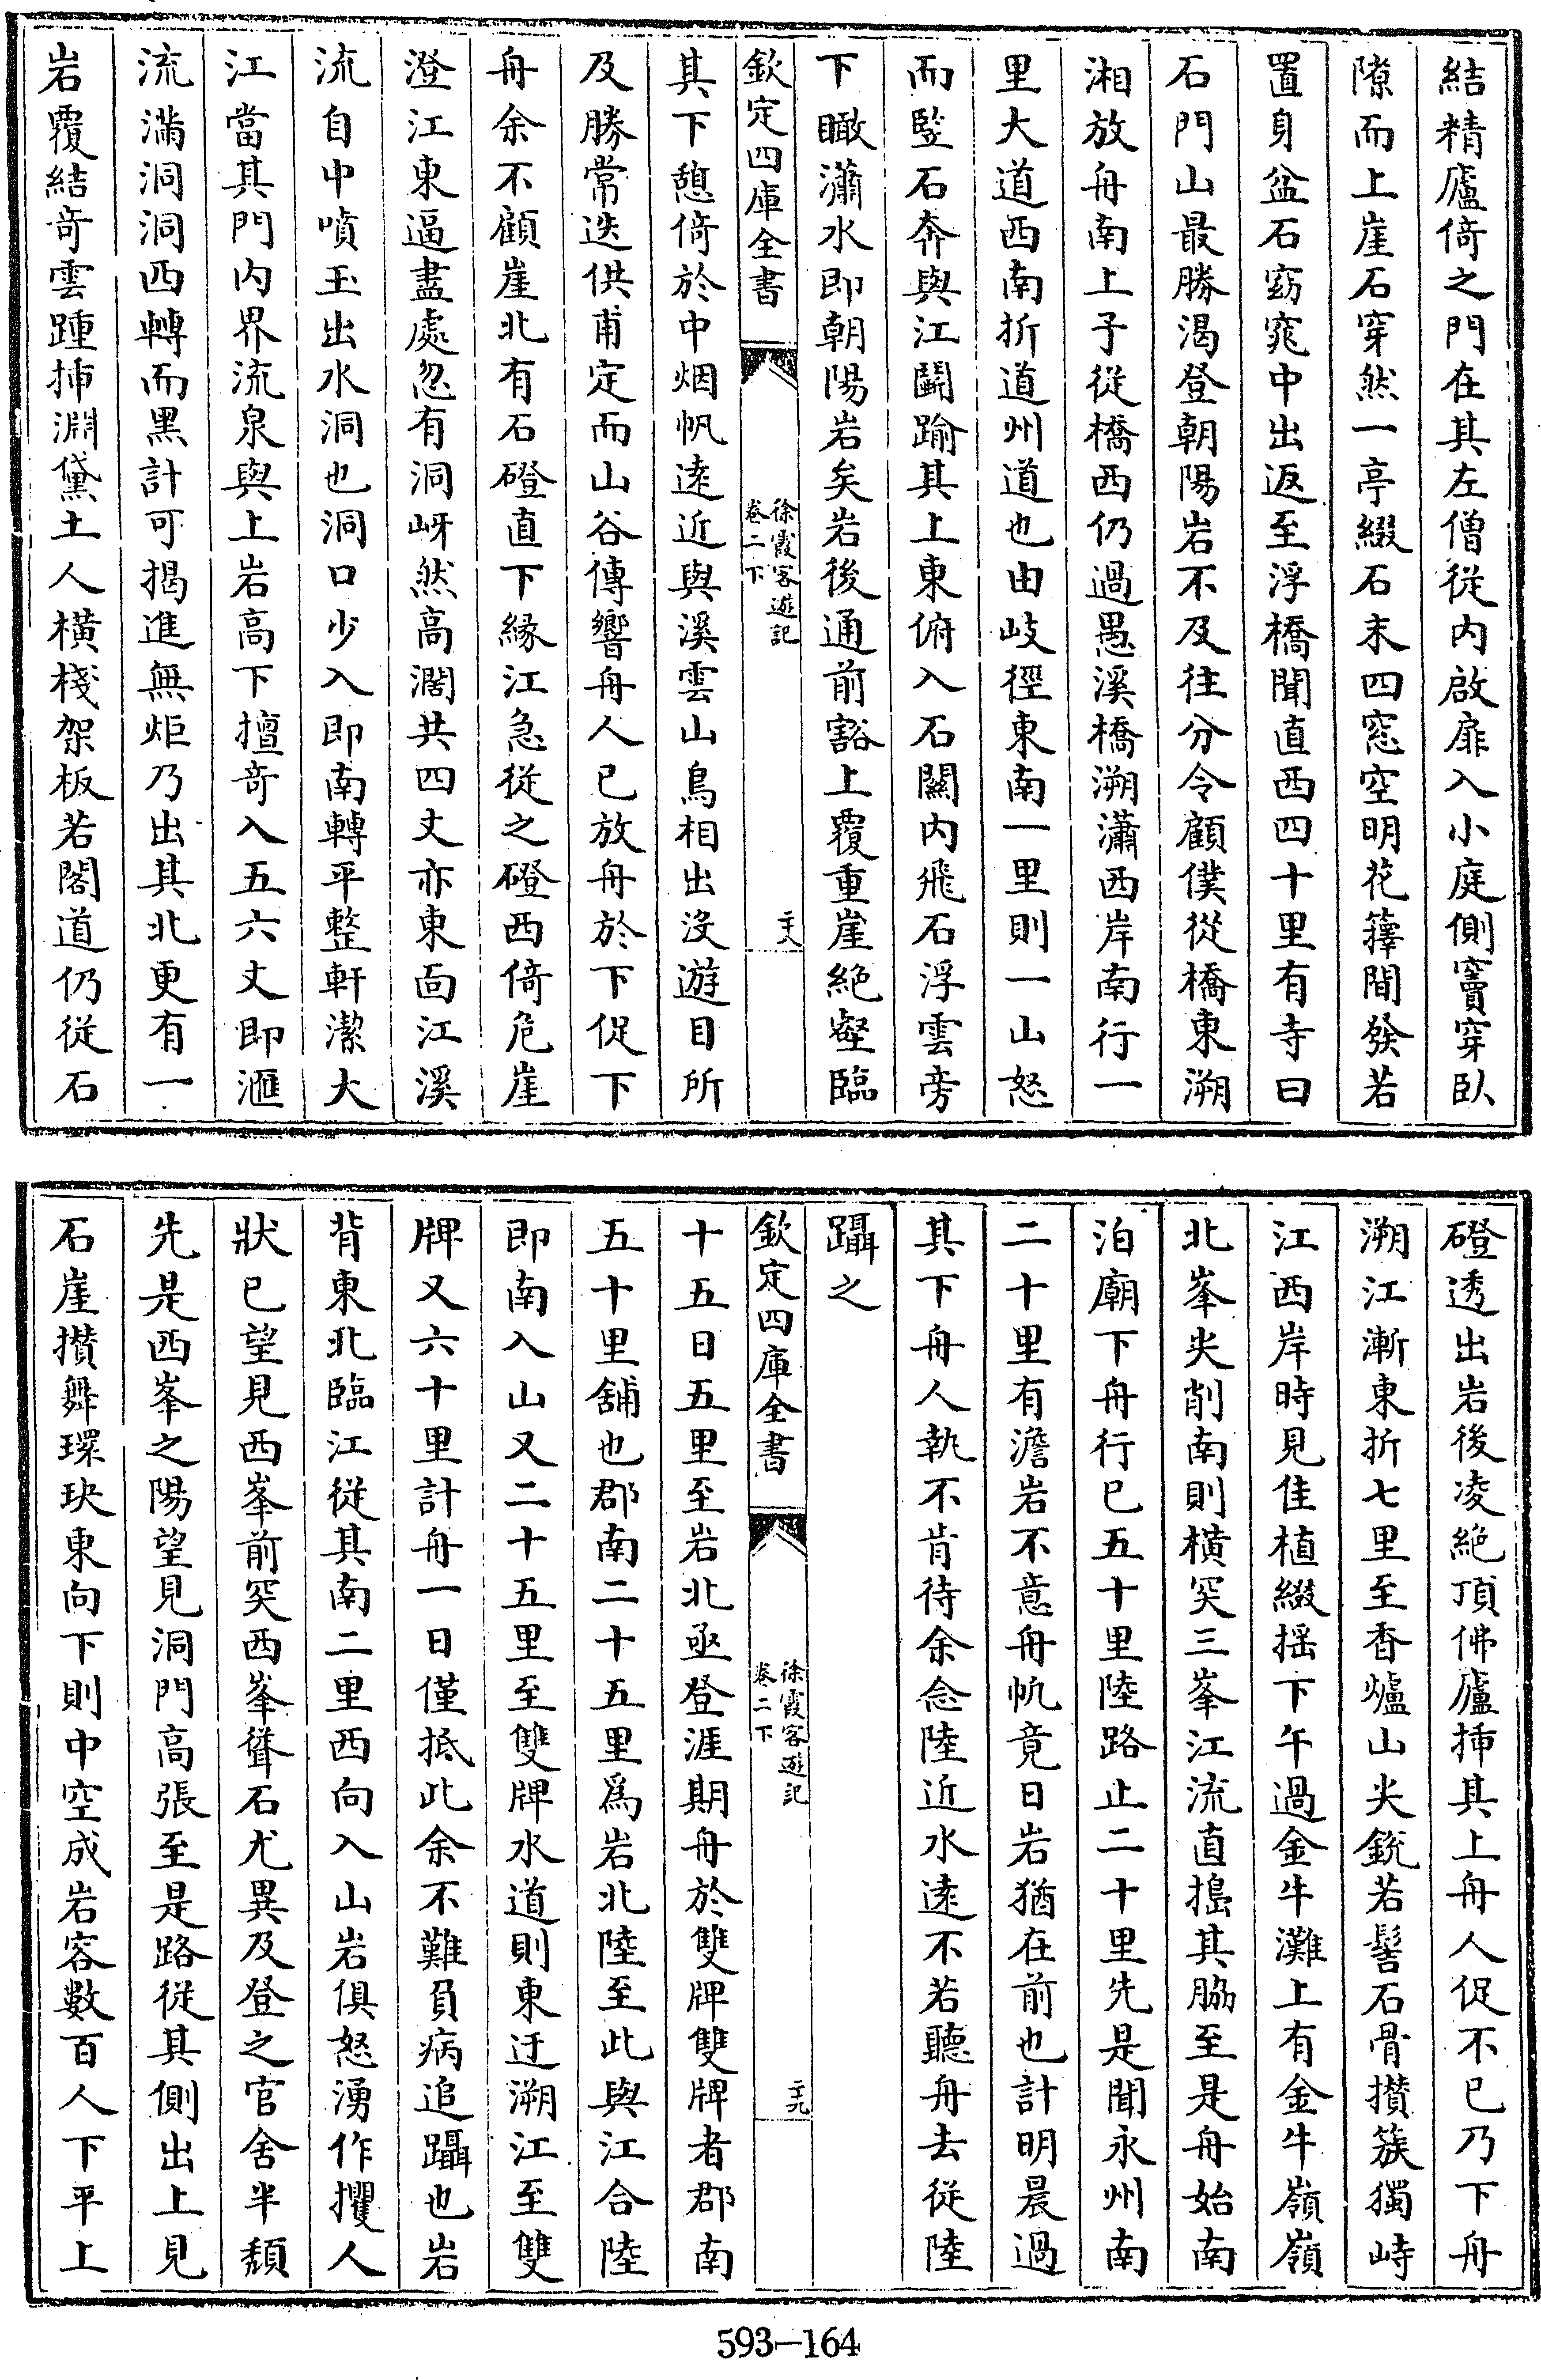 結精廬倚之門在其左僧從内啟扉入小庭側竇穿卧
隙而上崖石穿然一亭綴石末四窓空明花籜間發若
置身盆石窈窕中出返至浮橋聞直西四十里有寺曰
石門山最勝渴登朝陽岩不及往分令顧僕從橋東溯
湘放舟南上予從橋西仍過愚溪橋溯瀟西岸南行一
里大道西南折道州道也由岐徑東南一里則一山怒
而豎石奔與江鬭踰其上東俯入石關内飛石浮雲旁
下瞰瀟水即朝陽岩矣岩後通前豁上覆重崖絶壑臨
欽定四庫全書
徐霞客遊記
卷二下
二十八
其下憩倚於中烟帆遠近與溪雲山鳥相出没遊目所
及勝常迭供甫定而山谷傳響舟人已放舟於下促下
舟余不顧崖北有石磴直下縁江急從之磴西倚危崖
澄江東逼盡處忽有洞岈然高濶共四丈亦東面江溪
流自中噴玉出水洞也洞口少入即南轉平整軒潔大
江當其門内界流泉與上岩高下擅奇入五六丈即滙
流滿洞洞西轉而黒計可揭進無炬乃出其北更有一
岩覆結奇雲踵揷淵黛土人橫棧架板若閣道仍從石
磴透出岩後凌絶頂佛廬揷其上舟人促不已乃下舟
溯江漸東折七里至香爐山尖銳若髻石骨攅簇獨峙
江西岸時見佳植綴揺下午過金牛灘上有金牛嶺嶺
北峯尖削南則橫突三峯江流直搗其脇至是舟始南
泊廟下舟行已五十里陸路止二十里先是聞永州南
二十里有澹岩不意舟帆竟日岩猶在前也計明晨過
其下舟人執不肯待余念陸近水遠不若聽舟去從陸
躡之
欽定四庫全書
徐霞客遊記
卷二下
二十九
十五日五里至岩北亟登涯期舟於雙牌雙牌者郡南
五十里舖也郡南二十五里爲岩北陸至此與江合陸
即南入山又二十五里至雙牌水道則東迂溯江至雙
牌又六十里計舟一日僅抵此余不難負病追躡也岩
背東北臨江從其南二里西向入山岩俱怒湧作攫人
狀已望見西峯前突西峯聳石尤異及登之官舍半頽
先是西峯之陽望見洞門高張至是路從其側出上見
石崖攅舞環玦東向下則中空成岩容數百人下平上
593-164